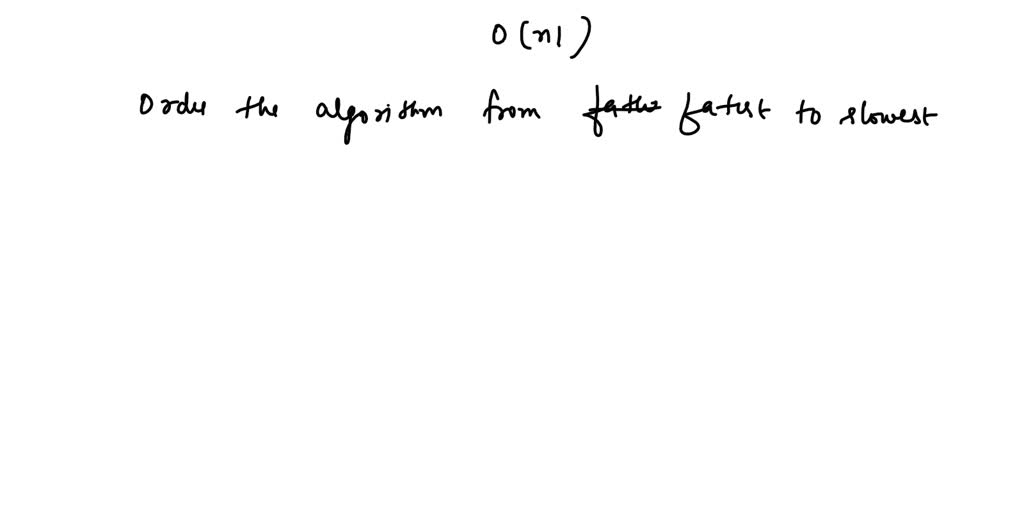 O(n!)
Order the algorithm from fathe fatest to slowest